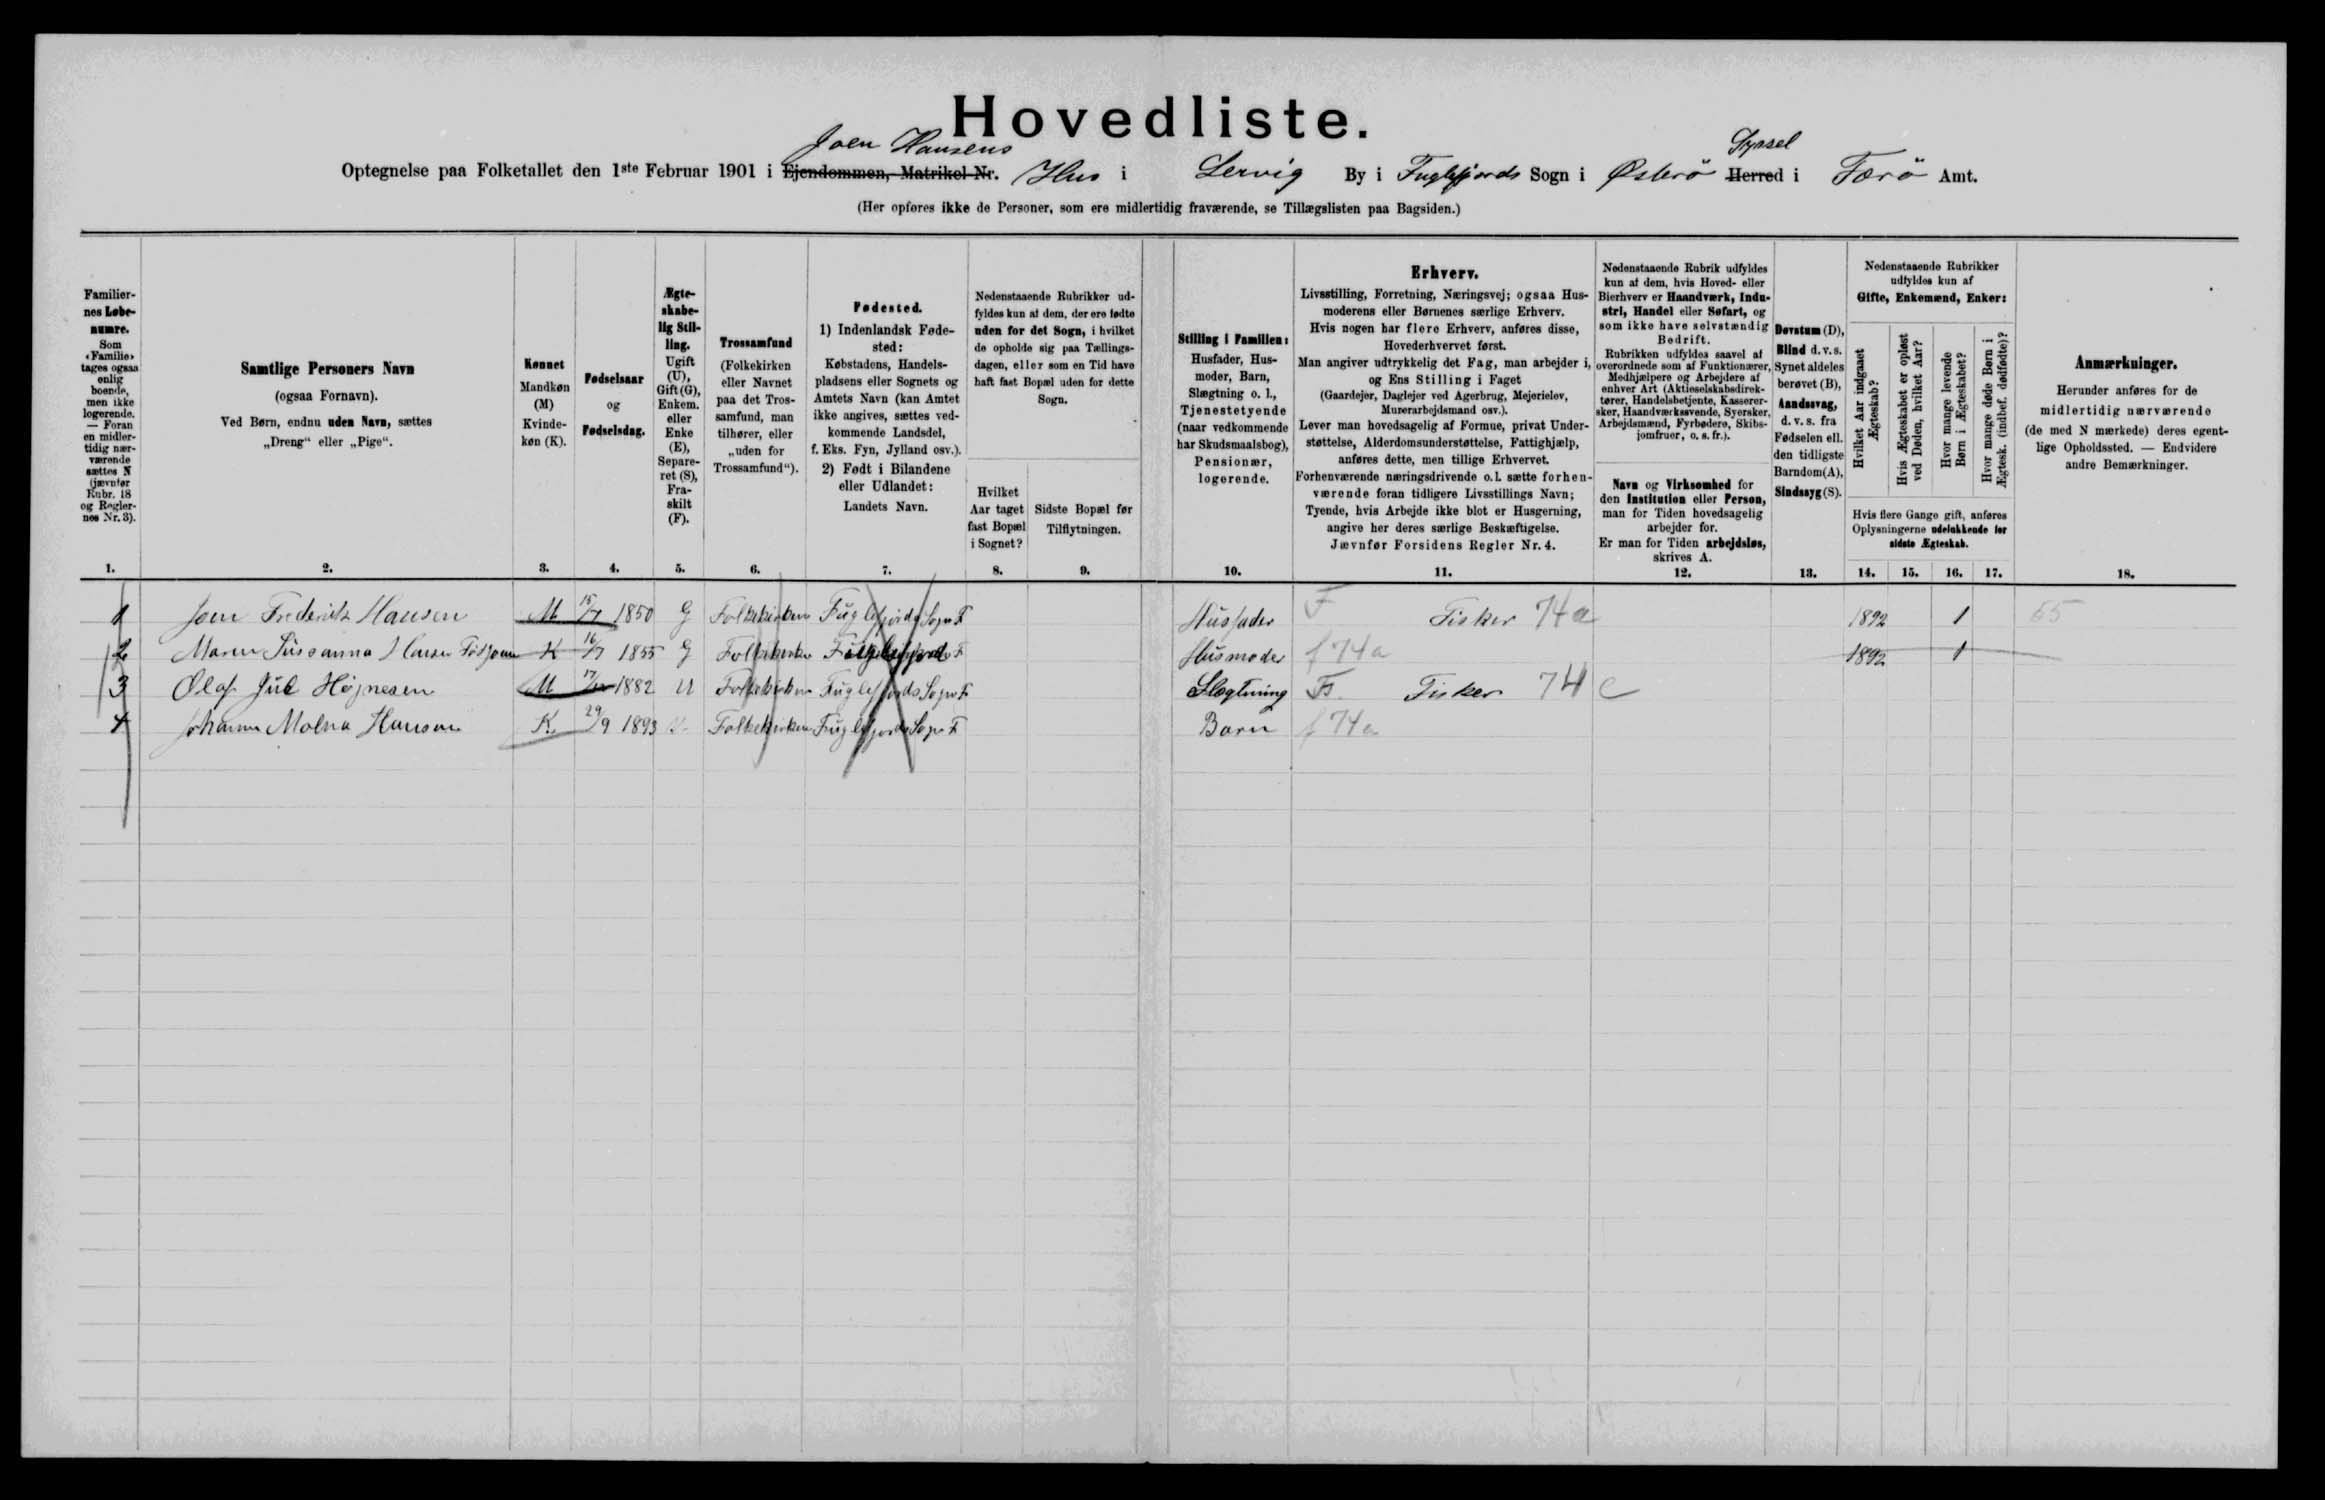 Hovedliste.
Joen Hansens Syssel
Optegnelse paa Folketallet den 1ste Februar 1901 i Ejendommen, Matrikel Nr. Hus i Lervig By i Fuglefjords Sogn i Østerö Herred i Færö Amt.
(Her opføres ikke de Personer, som ere midlertidig fraværende, se Tillægslisten paa Bagsiden.)
Familiernes Løbenumre.
Som «Familie» tages ogsaa enlig boende, men ikke logerende. — Foran en midlertidig nærværende sættes N (jævnfør Rubr. 18 og Reglernes Nr. 3).
Samtlige Personers Navn
(ogsaa Fornavn).
Ved Børn, endnu uden Navn, sættes
„Dreng“ eller „Pige“.
Kønnet
Mandkøn (M) Kvindekøn (K).
Fødselsaar
og
Fødselsdag.
Ægteskabelig Stilling.
Ugift (U), Gift (G), Enkem. eller Enke (E), Separeret (S), Fraskilt (F).
Trossamfund
(Folkekirken eller Navnet paa det Trossamfund, man tilhører, eller „uden for Trossamfund“).
Fødested.
1) Indenlandsk Fødested:
Købstadens, Handelspladsens eller Sognets og Amtets Navn (kan Amtet ikke angives, sættes vedkommende Landsdel, f. Eks. Fyn, Jylland osv.).
2) Født i Bilandene eller Udlandet:
Landets Navn.
Nedenstaaende Rubrikker udfyldes kun af dem, der ere fødte uden for det Sogn, i hvilket de opholde sig paa Tællingsdagen, eller som en Tid have haft fast Bopæl uden for dette Sogn.
Hvilket Aar taget fast Bopæl i Sognet?
Sidste Bopæl før Tilflytningen.
Stilling i Familien:
Husfader, Husmoder, Barn, Slægtning o. l., Tjenestetyende (naar vedkommende har Skudsmaalsbog), Pensionær, logerende.
Erhverv.
Livsstilling, Forretning, Næringsvej; ogsaa Husmoderens eller Børnenes særlige Erhverv.
Hvis nogen har flere Erhverv, anføres disse, Hovederhvervet først.
Man angiver udtrykkelig det Fag, man arbejder i, og Ens Stilling i Faget
(Gaardejer, Daglejer ved Agerbrug, Mejerielev, Murerarbejdsmand osv.).
Lever man hovedsagelig af Formue, privat Understøttelse, Alderdomsunderstøttelse, Fattighjælp, anføres dette, men tillige Erhvervet.
Forhenværende næringsdrivende o. l. sætte forhenværende foran tidligere Livsstillings Navn;
Tyende, hvis Arbejde ikke blot er Husgerning, angive her deres særlige Beskæftigelse.
Jævnfør Forsidens Regler Nr. 4.
Nedenstaaende Rubrik udfyldes kun af dem, hvis Hoved- eller Bierhverv er Haandværk, Industri, Handel eller Søfart, og som ikke have selvstændig Bedrift.
Rubrikken udfyldes saavel af overordnede som af Funktionærer, Medhjælpere og Arbejdere af enhver Art (Aktieselskabsdirektører, Handelsbetjente, Kasserersker, Haandværkssvende, Syersker, Arbejdsmænd, Fyrbødere, Skibsjomfruer, o. s. fr.).
Navn og Virksomhed for den Institution eller Person, man for Tiden hovedsagelig arbejder for.
Er man for Tiden arbejdsløs, skrives A.
Døvstum (D), Blind d. v. s. Synet aldeles berøvet (B), Aandssvag, d. v. s. fra Fødselen ell. den tidligste Barndom (A), Sindssyg (S).
Nedenstaaende Rubrikker udfyldes kun af
Gifte, Enkemænd, Enker:
Hvilket Aar indgaaet Ægteskab?
Hvis Ægteskabet er opløst ved Døden, hvilket Aar?
Hvor mange levende Børn i Ægteskabet?
Hvor mange døde Børn i Ægtesk. (indbef. dødfødte)?
Hvis flere Gange gift, anføres Oplysningerne udelukkende for sidste Ægteskab.
Anmærkninger.
Herunder anføres for de midlertidig nærværende (de med N mærkede) deres egentlige Opholdssted. — Endvidere andre Bemærkninger.
1. 2. 3. 4. 5. 6. 7. 8. 9. 10. 11. 12. 13. 14. 15. 16. 17. 18.
1 Joen Frederik Hansen M 15/7 1850 G Folkekirken Fuglefjords Sogn F Husfader F Fisker 74a 1892 1 65
2 Maren Susanna Hansen K 16/7 1855 G Folkekirken Fuglefjords F Husmoder f 74a 1892 1
3 Olaf Jul Højnesen M 1882 U Folkekirken Fuglefjords Sogn F Slægtning Fisker 74 c
4 Johanna Malna Hansen K 29/9 1893 U Folkekirken Fuglefjords Sogn F Barn f 74a